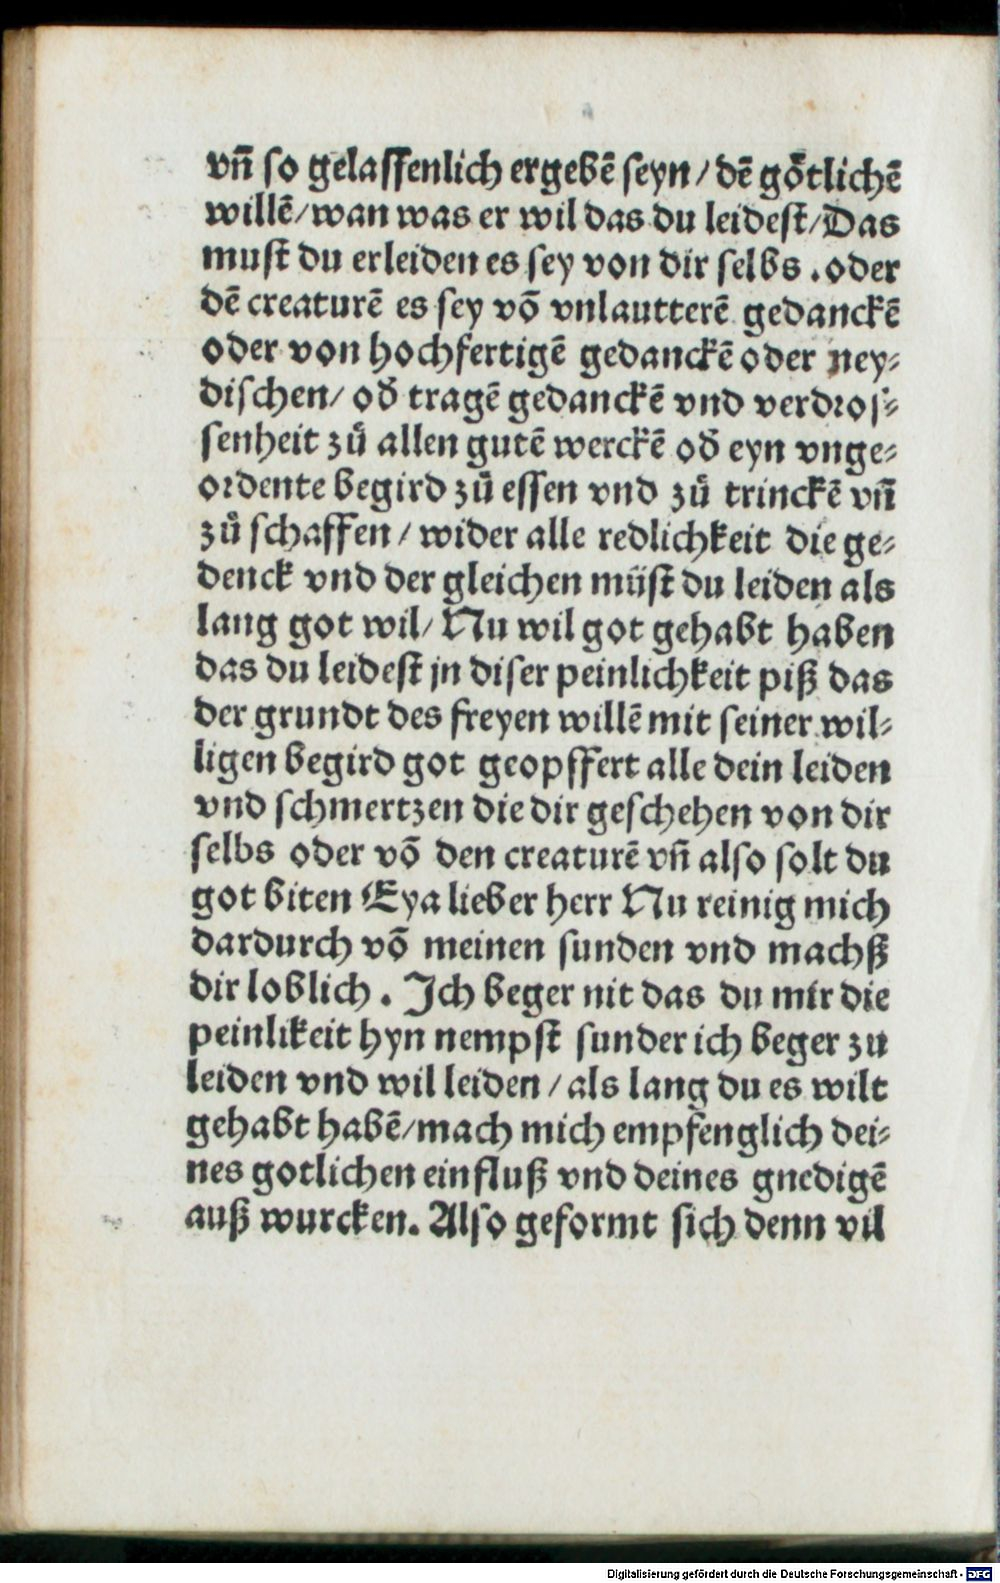 vn̄ so gelassenlich ergebē seyn / dē gǒtlichē
willē / wan was er wil das du leidest / Das
must du erleiden es sey von dir selbs . oder
dē creaturē es sey vō vnlautterē gedanckē
oder von hochfertigē gedanckē oder ney⸗
dischen / od̄ tragē gedanckē vnd verdros⸗
senheit zů allen gutē werckē od̄ eyn vnge⸗
ordente begird zů essen vnd zů trinckē vn̄
zů schaffen / wider alle redlichkeit die ge⸗
denck vnd der gleichen müst du leiden als
lang got wil / Nu wil got gehabt haben
das du leidest jn diser peinlichkeit piß das
der grundt des freyen willē mit seiner wil⸗
ligen begird got geopffert alle dein leiden
vnd schmertzen die dir geschehen von dir
selbs oder vō den creaturē vn̄ also solt du
got biten Eya lieber herr Nu reinig mich
dardurch vō meinen sunden vnd machß
dir loblich . Ich beger nit das du mir die
peinlikeit hyn nempst sunder ich beger zu
leiden vnd wil leiden / als lang du es wilt
gehabt habē / mach mich empfenglich dei⸗
nes gotlichen einfluß vnd deines gnedigē
auß wurcken. Also geformt sich denn vil
Digitalisierung gefördert durch die Deutsche Forschungsgemeinschaft - DFG